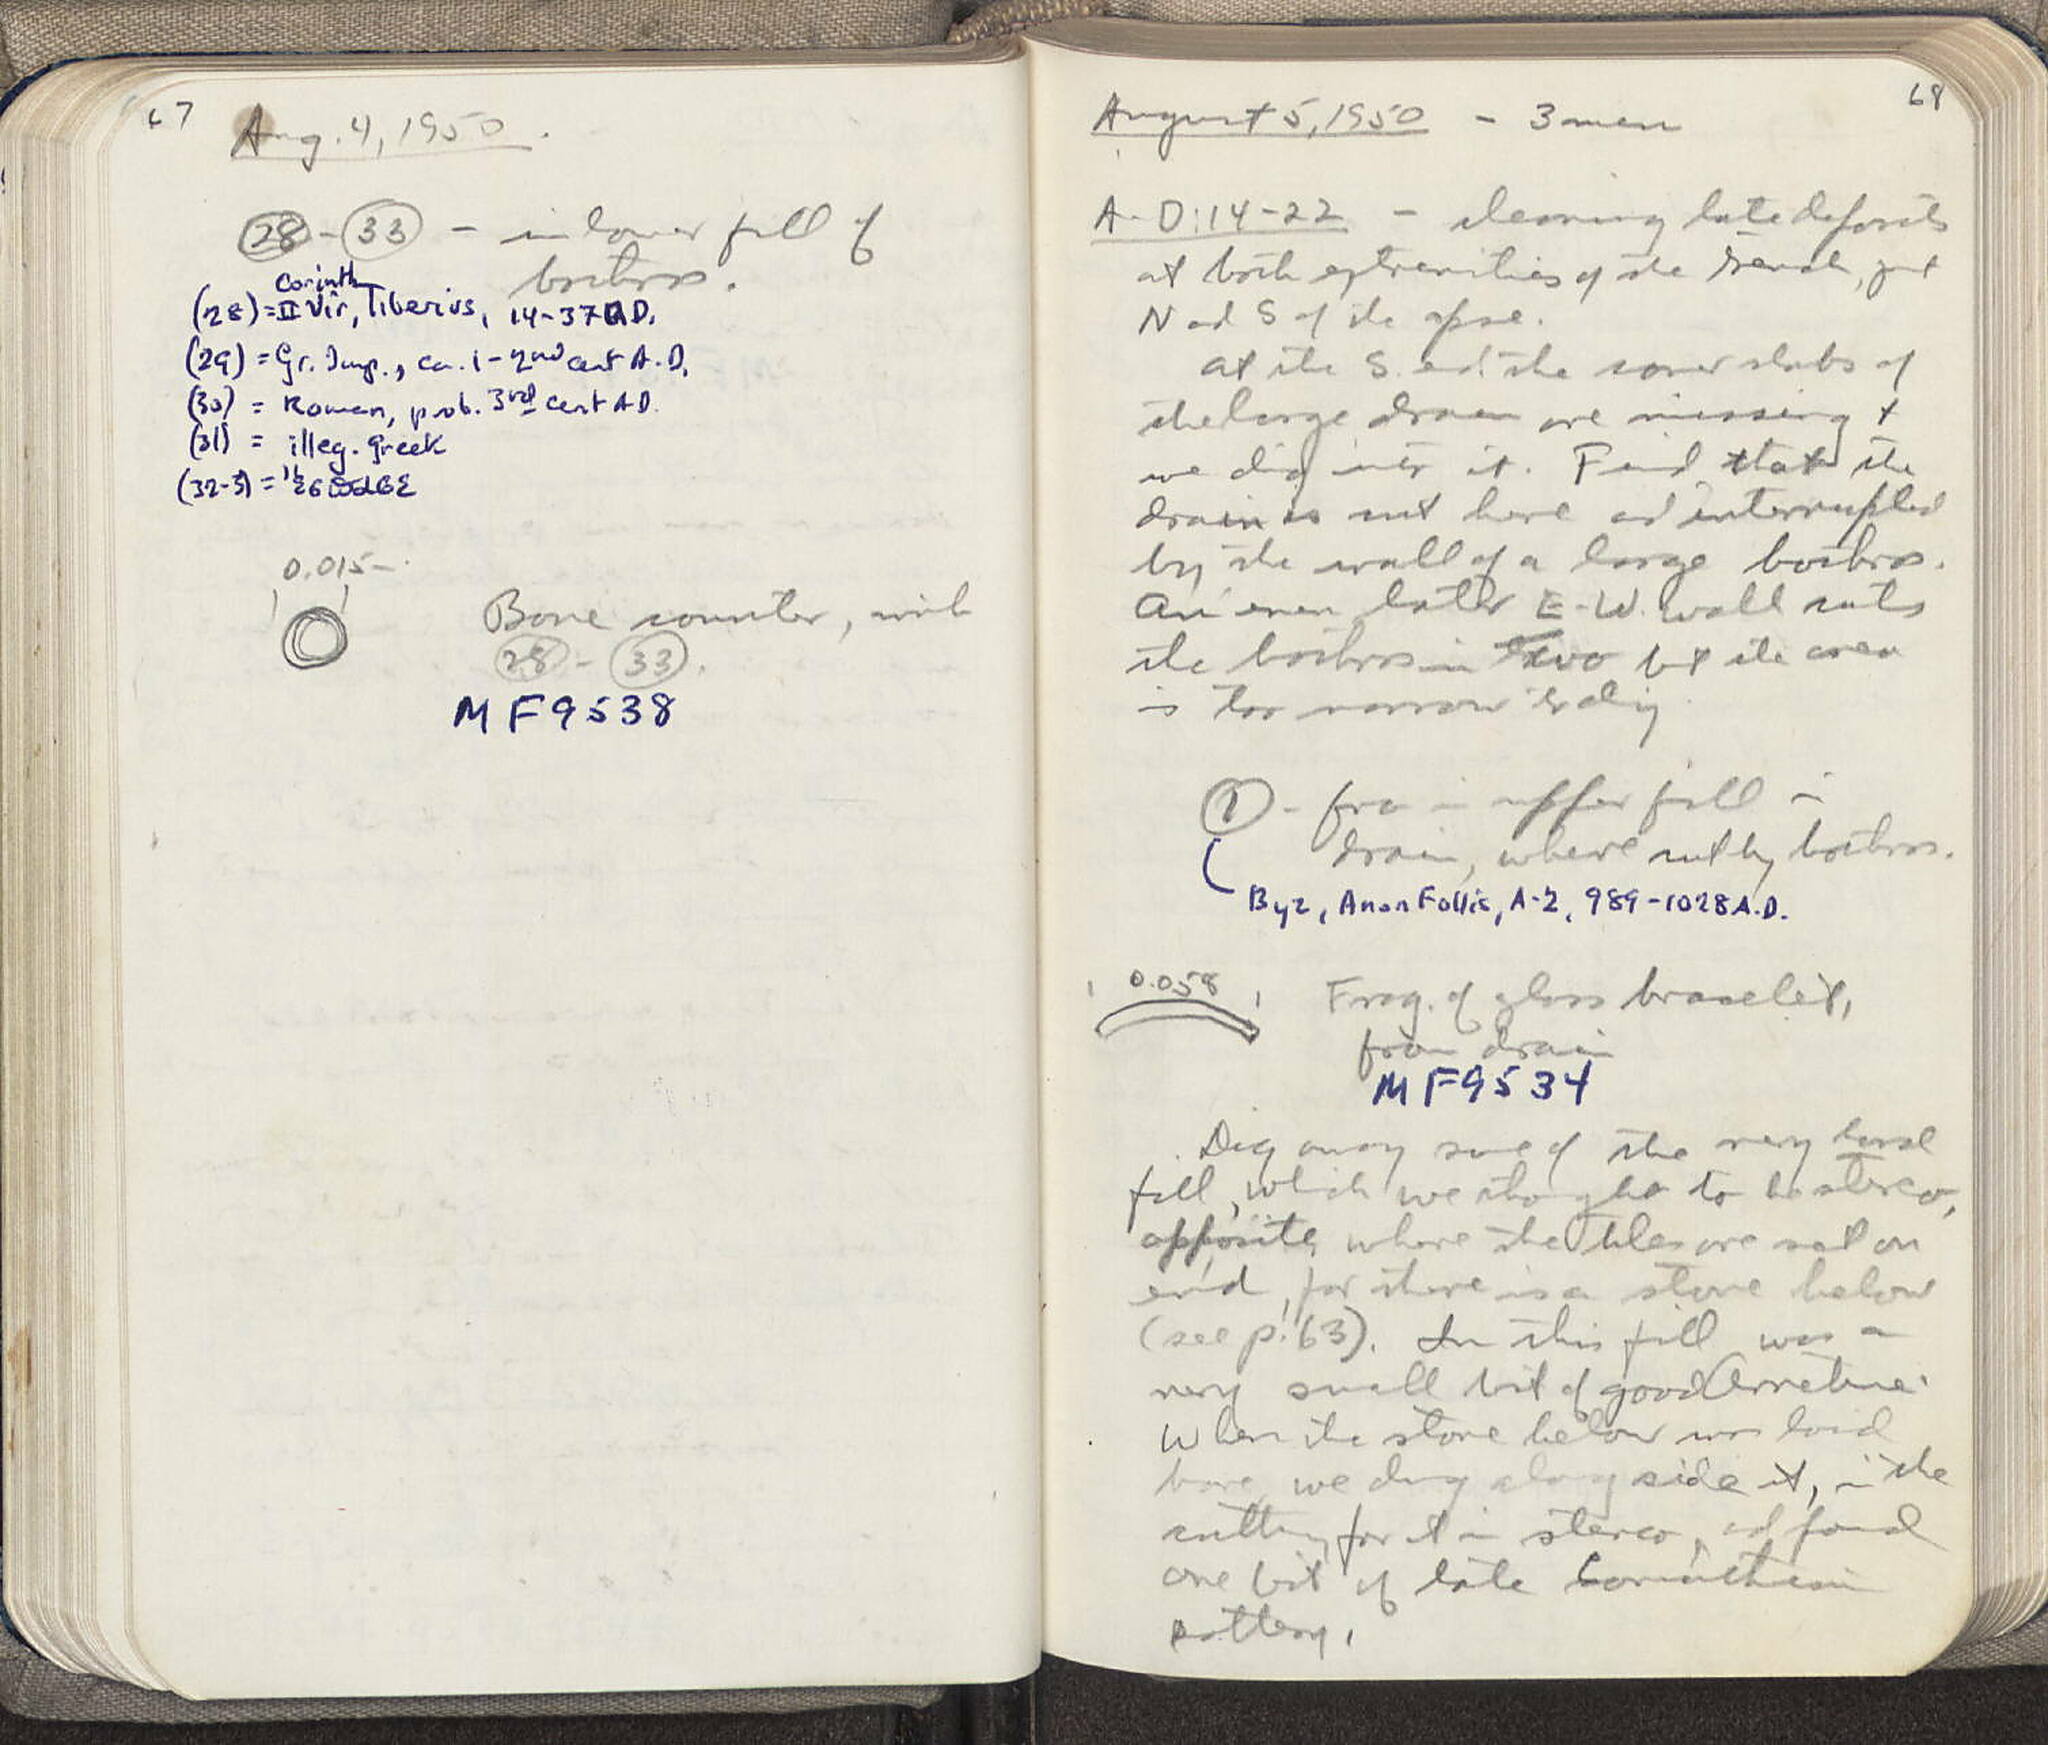 67
Aug. 4, 1950.
28 - 33 - in lower fill of
bothros.
Corinth
(28) = II Vir, Tiberius, 14-37 A.D.
(29) = Gr. Imp., ca. 1-2nd cent A.D.
(30) = Roman, prob. 3rd cent AD.
(31) = illeg. Greek
(32-3) =
0.015-
Bone counter, with
28 - 33.
MF9538
68
August 5, 1950 - 3 men
A-D:14-22 - cleaning late deposits
at both extremities of the trench, just
N and S of the apse.
At the S. end the cover slabs of
the large drain are missing +
we dig into it. Find that the
drain is cut here and interrupted
by the wall of a large bothros.
An even later E-W. wall cuts
the bothros in two but the area
is too narrow to dig.
1 - from in upper fill in
drain, where cut by bothros.
Byz, Anon Follis, A-2, 989-1028 A.D.
0.058
Frag. of glass bracelet,
from drain
MF9534
Dig away some of the very hard
fill, which we thought to be stereo,
opposite where the tiles are set on
end, for there is a stone below
(see p. 63). In this fill was a
very small bit of good Arretine.
When the stone below was laid
bare we dug along side it, in the
cutting for it in stereo, and found
one bit of late Corinthian
pottery.